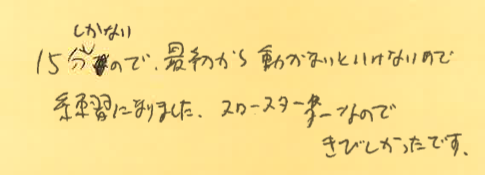 しかない
15分ので、最初から動かないといけないので
練習になりました。スロースターターなので
きびしかったです。